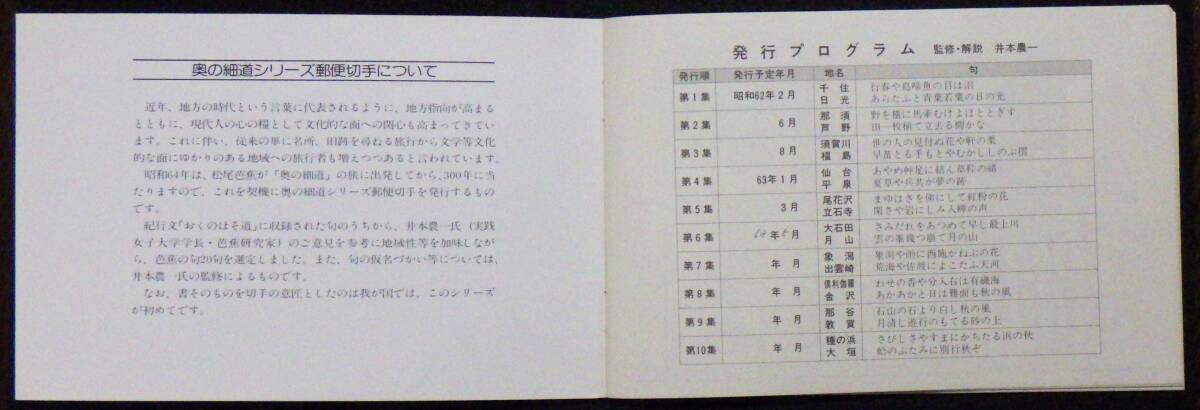 奥の細道シリーズ郵便切手について
近年、地方の時代という言葉に代表されるように、地方指向が高まる
とともに、現代人の心の糧として文化的な面への関心も高まってきてい
ます。これに伴い、従来の単に名所、旧跡を尋ねる旅行から文学等文化
的な面にゆかりのある地域への旅行者も増えつつあると言われています。
昭和64年は、松尾芭蕉が「奥の細道」の旅に出発してから、300年に当
たりますので、これを契機に奥の細道シリーズ郵便切手を発行するもの
です。
紀行文『おくのほそ道』に収録された句のうちから、井本農一氏（実践
女子大学学長・芭蕉研究家）のご意見を参考に地域性等を加味しなが
ら、芭蕉の句20句を選定しました。また、句の仮名づかい等については、
井本農一氏の監修によるものです。
なお、書そのものを切手の意匠としたのは我が国では、このシリーズ
が初めてです。
発行プログラム 監修・解説 井本農一
発行順 発行予定年月 地名 句
第1集 昭和62年2月 千住 行春や鳥啼魚の目は泪
日光 あらたふと青葉若葉の日の光
第2集 6月 那須 野を横に馬牽むけよほととぎす
芦野 田一枚植て立去る柳かな
第3集 8月 須賀川 世の人の見付ぬ花や軒の栗
福島 早苗とる手もとやむかししのぶ摺
第4集 63年1月 仙台 あやめ艸足に結ん草鞋の緒
平泉 夏草や兵共が夢の跡
第5集 3月 尾花沢 まゆはきを俤にして紅粉の花
立石寺 閑さや岩にしみ入蟬の声
第6集 年 月 大石田 さみだれをあつめて早し最上川
月山 雲の峯幾つ崩て月の山
第7集 年 月 象潟 象潟や雨に西施がねぶの花
出雲崎 荒海や佐渡によこたふ天河
第8集 年 月 俱利伽羅 わせの香や分入右は有磯海
金沢 あかあかと日は難面も秋の風
第9集 年 月 那谷 石山の石より白し秋の風
敦賀 月清し遊行のもてる砂の上
第10集 年 月 種の浜 さびしさやすまにかちたる浜の秋
大垣 蛤のふたみに別行秋ぞ